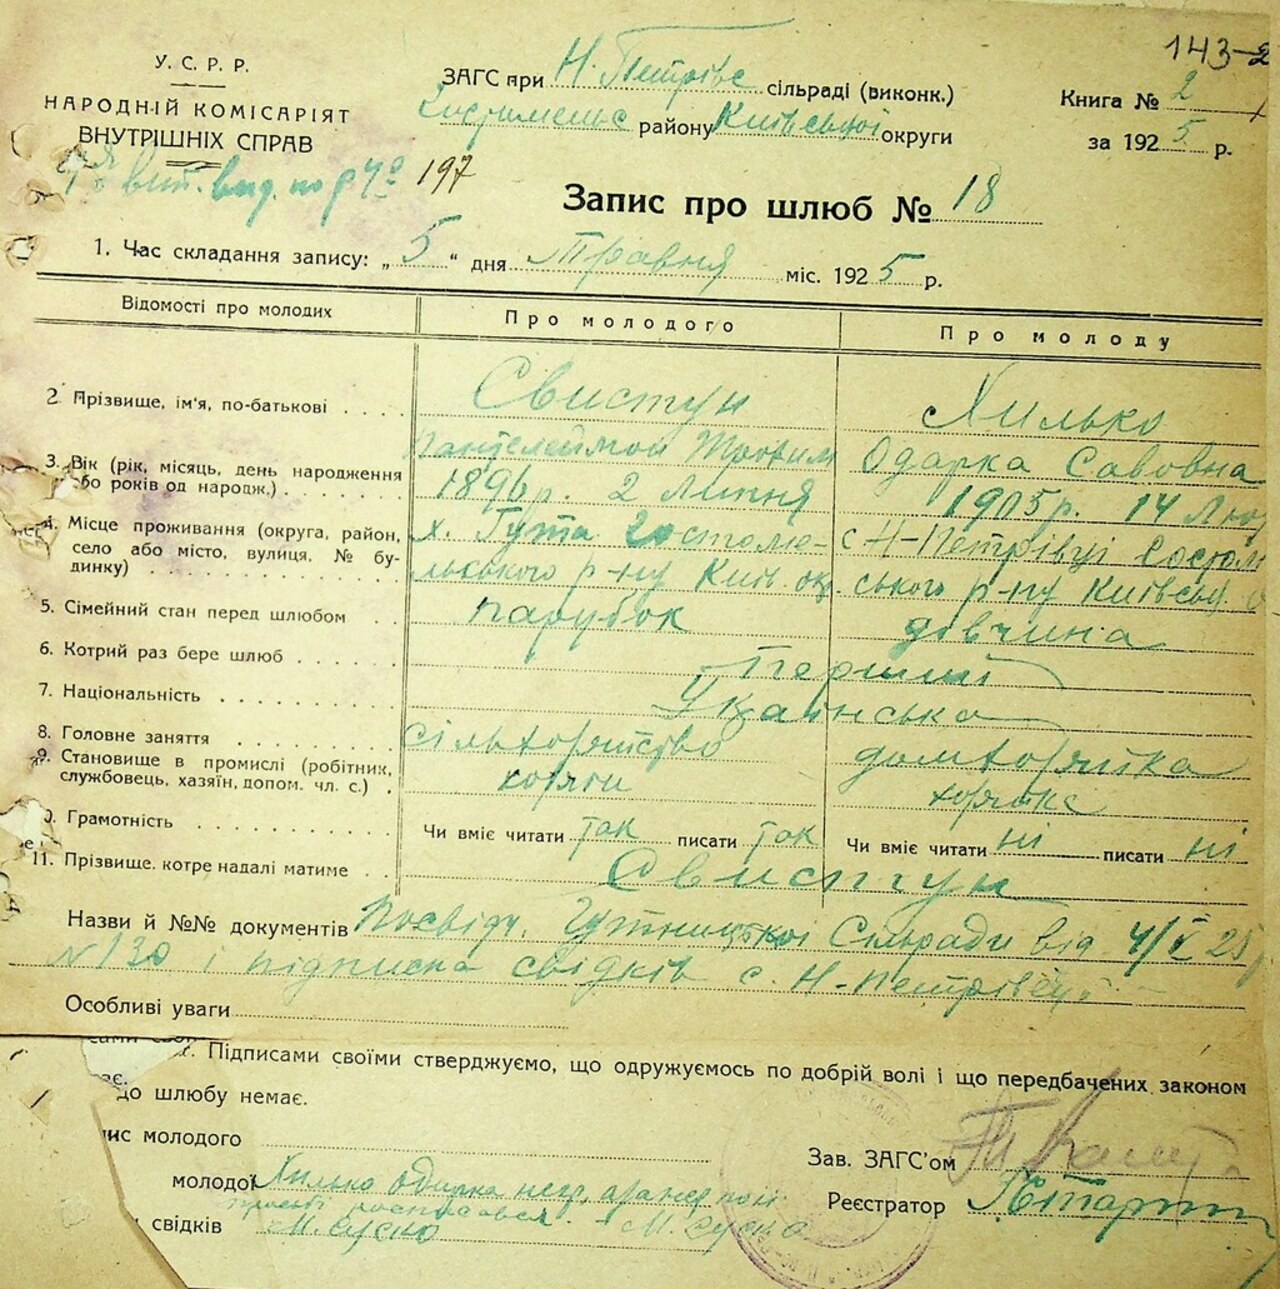 143-2
У. С. Р. Р.
НАРОДНІЙ КОМІСАРІЯТ
ВНУТРІШНІХ СПРАВ
вит. вид. по 197
ЗАГС при Н. Петрівс сільраді (виконк.)
Гостомельс району Київської округи
Книга № 2
за 1925 р.
Запис про шлюб № 18
1. Час складання запису: „5“ дня Травня міс. 1925 р.
Відомості про молодих
Про молодого
Про молоду
2. Прізвище, ім'я, по-батькові
Свистун
Пантелеймон Трохим
Хилько
Одарка Савовна
3. Вік (рік, місяць, день народження
або років од народж.)
1896 р. 2 Липня
1905 р. 14 Лют
4. Місце проживання (округа, район,
село або місто, вулиця, № бу-
динку)
х. Гута Гостоме-
льського р-ну Київ. окр.
с Н-Петрівці Гостом
ського р-ну Київськ. о
5. Сімейний стан перед шлюбом
парубок
дівчина
6. Котрий раз бере шлюб
Перший
7. Національність
Українська
8. Головне заняття
сільхозяйство
домхозяйка
9. Становище в промислі (робітник,
службовець, хазяїн, допом. чл. с.)
хозяин
хозяйка
0. Грамотність
Чи вміє читати так писати так
Чи вміє читати ні писати ні
11. Прізвище, котре надалі матиме
Свистун
Назви й №№ документів Посвідч. Гутницької Сільради від 4/V 25 р
N 130 і підписка свідків с. Н-Петрівці
Особливі уваги
Підписами своїми стверджуємо, що одружуємось по добрій волі і що передбачених законом
до шлюбу немає.
пис молодого
молодої Хилько Одарка негр. а за неї по її
прозьбі росписався М. Суско
свідків М. Суско
Зав. ЗАГС'ом
Реєстратор